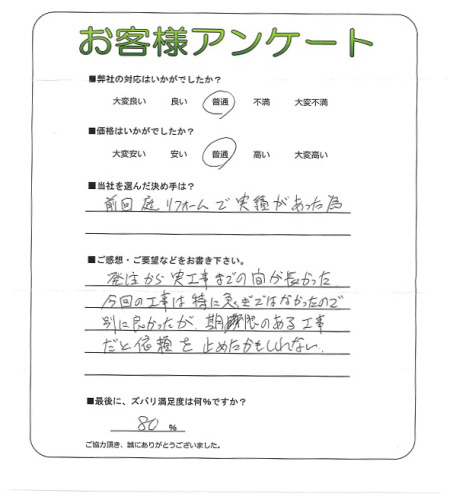 お客様アンケート
■弊社の対応はいかがでしたか?
大変良い 良い 普通 不満 大変不満
■価格はいかがでしたか?
大変安い 安い 普通 高い 大変高い
■当社を選んだ決め手は?
前回庭リフォームで実績があった為
■ご感想・ご要望などをお書き下さい。
発注から実工事までの間が長かった
今回の工事は特に急ぎではなかったので
別に良かったが、期限のある工事
だと依頼を止めたかもしれない.
■最後に、ズバリ満足度は何%ですか?
80 %
ご協力頂き、誠にありがとうございました。